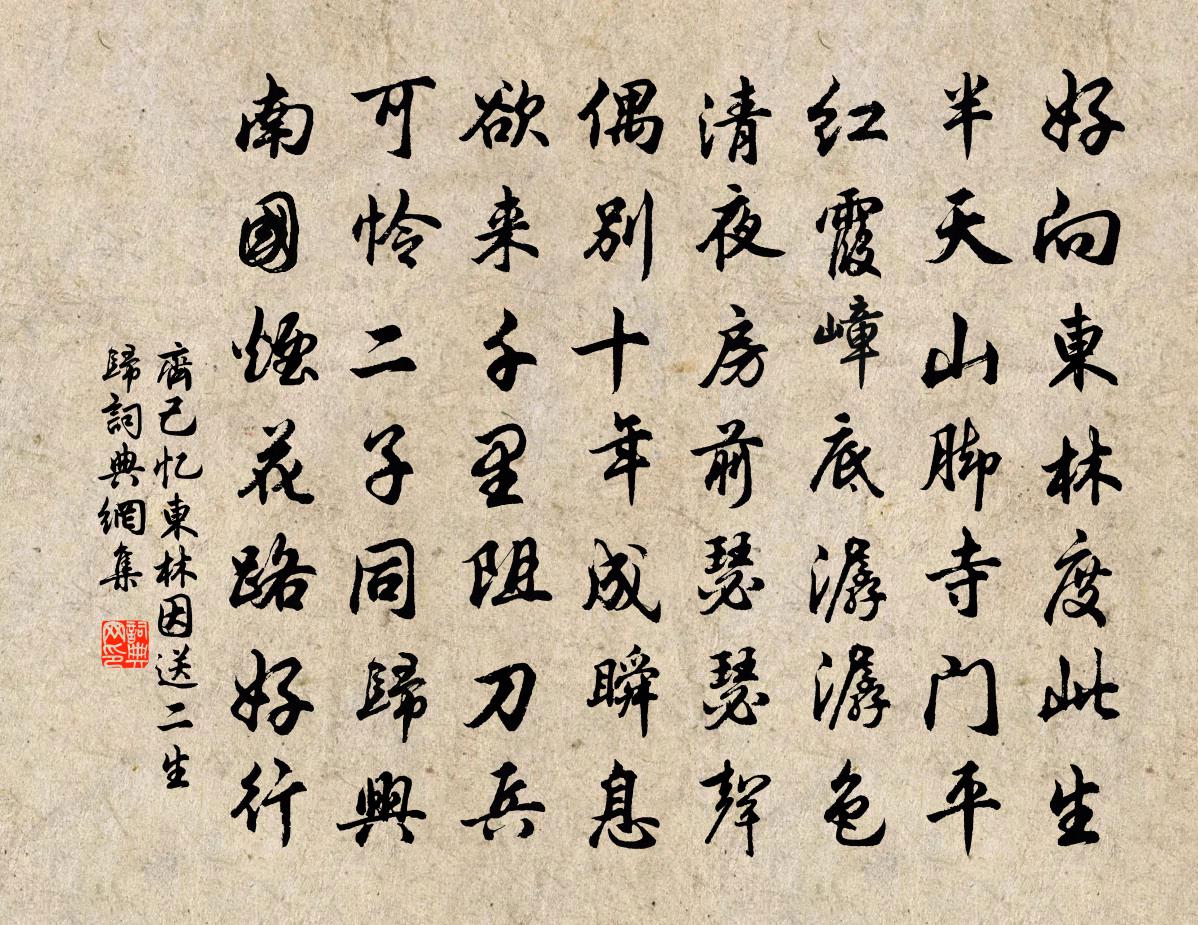 好向東林度此生
半天山脚寺门平
红霞嶂底潺潺色
清夜房前瑟瑟聲
偶别十年成瞬息
欲来千里阻刀兵
可怜二子同歸興
南國煙花路好行
齊己忆東林因送二生
歸詞典網集
詞典网印